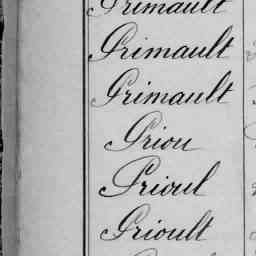 Primault
Primault
Primault
Priou
Prioul
Prioult